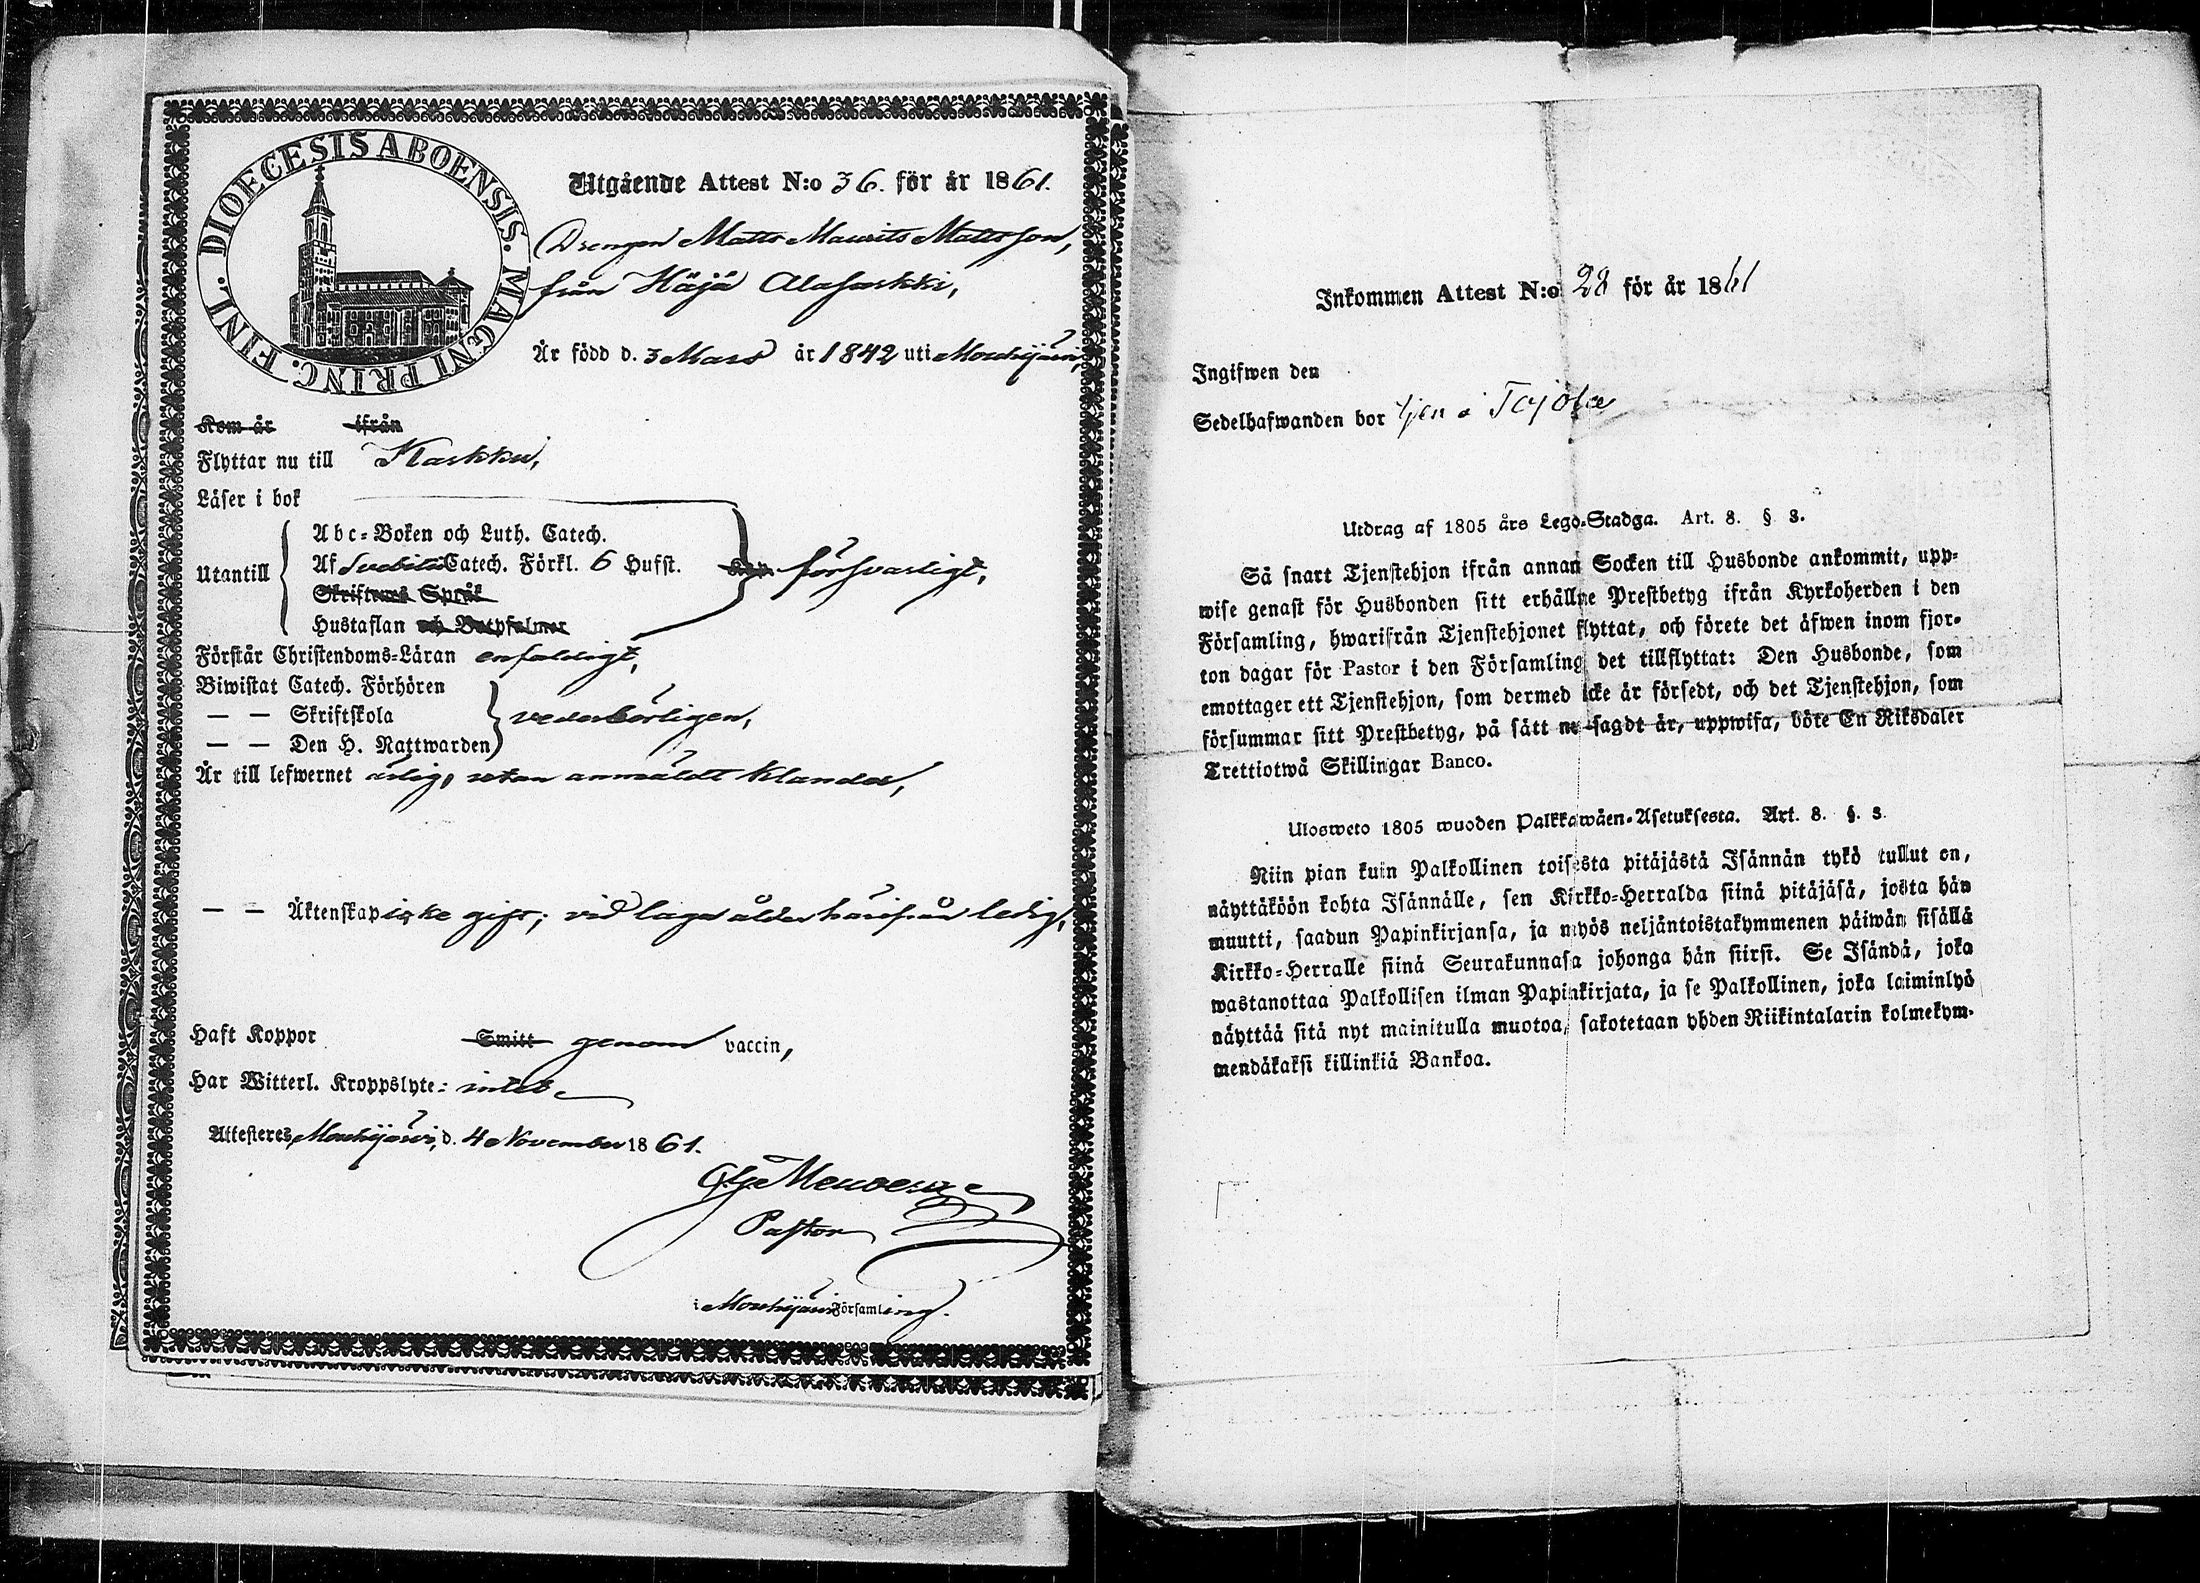 DIOECESIS ABOENSIS. MAGNI PRINC. FINL.
Utgående Attest N:o 36. för år 1861.
Drengen Matts Maurits Matsson,
från Häjä Alasarkki,
Är född d. 3 Mars år 1842 uti Mouhijärvi,
Kom år ifrån
Flyttar nu till Karkku,
Läser i bok
Abc-Boken och Luth. Catech.
Utantill Af Svebilii Catech. Förkl. 6 Hufst. försvarligt,
Skriftens Språk
Hustaflan och Botpsalmer
Förstår Christendoms-Läran enfaldigt,
Biwistat Catech. Förhören
— — Skriftskola vederbörligen,
— — Den H. Nattwarden
Är till lefwernet ärlig, utan anmäldt klander,
— — Äktenskap icke gift; vid laga ålder härifrån ledig,
Haft Koppor Smitt genom vaccin,
Har Witterl. Kroppslyte: intet
Attesteres Mouhijärvi, d. 4 November 1861.
Pastor
i Mouhijärvi Församling.
Inkommen Attest N:o 28 för år 1861
Ingifwen den
Sedelhafwanden bor
Utdrag af 1805 års Lego-Stadga. Art. 8. § 3.
Så snart Tjenstehjon ifrån annan Socken till Husbonde ankommit, upp-
wise genast för Husbonden sitt erhållne Prestbetyg ifrån Kyrkoherden i den
Församling, hwarifrån Tjenstehjonet flyttat, och förete det äfwen inom fjor-
ton dagar för Pastor i den Församling det tillflyttat: Den Husbonde, som
emottager ett Tjenstehjon, som dermed icke är försedt, och det Tjenstehjon, som
försummar sitt Prestbetyg, på sätt nu sagdt är, uppwisa, böte En Riksdaler
Trettiotwå Skillingar Banco.
Ulosweto 1805 wuoden Palkkawäen-Asetuksesta. Art. 8. §. 3.
Niin pian kuin Palkollinen toisesta pitäjästä Isännän tykö tullut on,
näyttäköön kohta Isännälle, sen Kirkko-Herralda siinä pitäjäsä, josta hän
muutti, saadun Papinkirjansa, ja myös neljäntoistakymmenen päiwän sisällä
Kirkko-Herralle siinä Seurakunnasa johonga hän siirsi. Se Isändä, joka
wastanottaa Palkollisen ilman Papinkirjata, ja se Palkollinen, joka laiminlyö
näyttää sitä nyt mainitulla muotoa, sakotetaan yhden Riikintalarin kolmekym-
mendäkaksi killinkiä Bankoa.